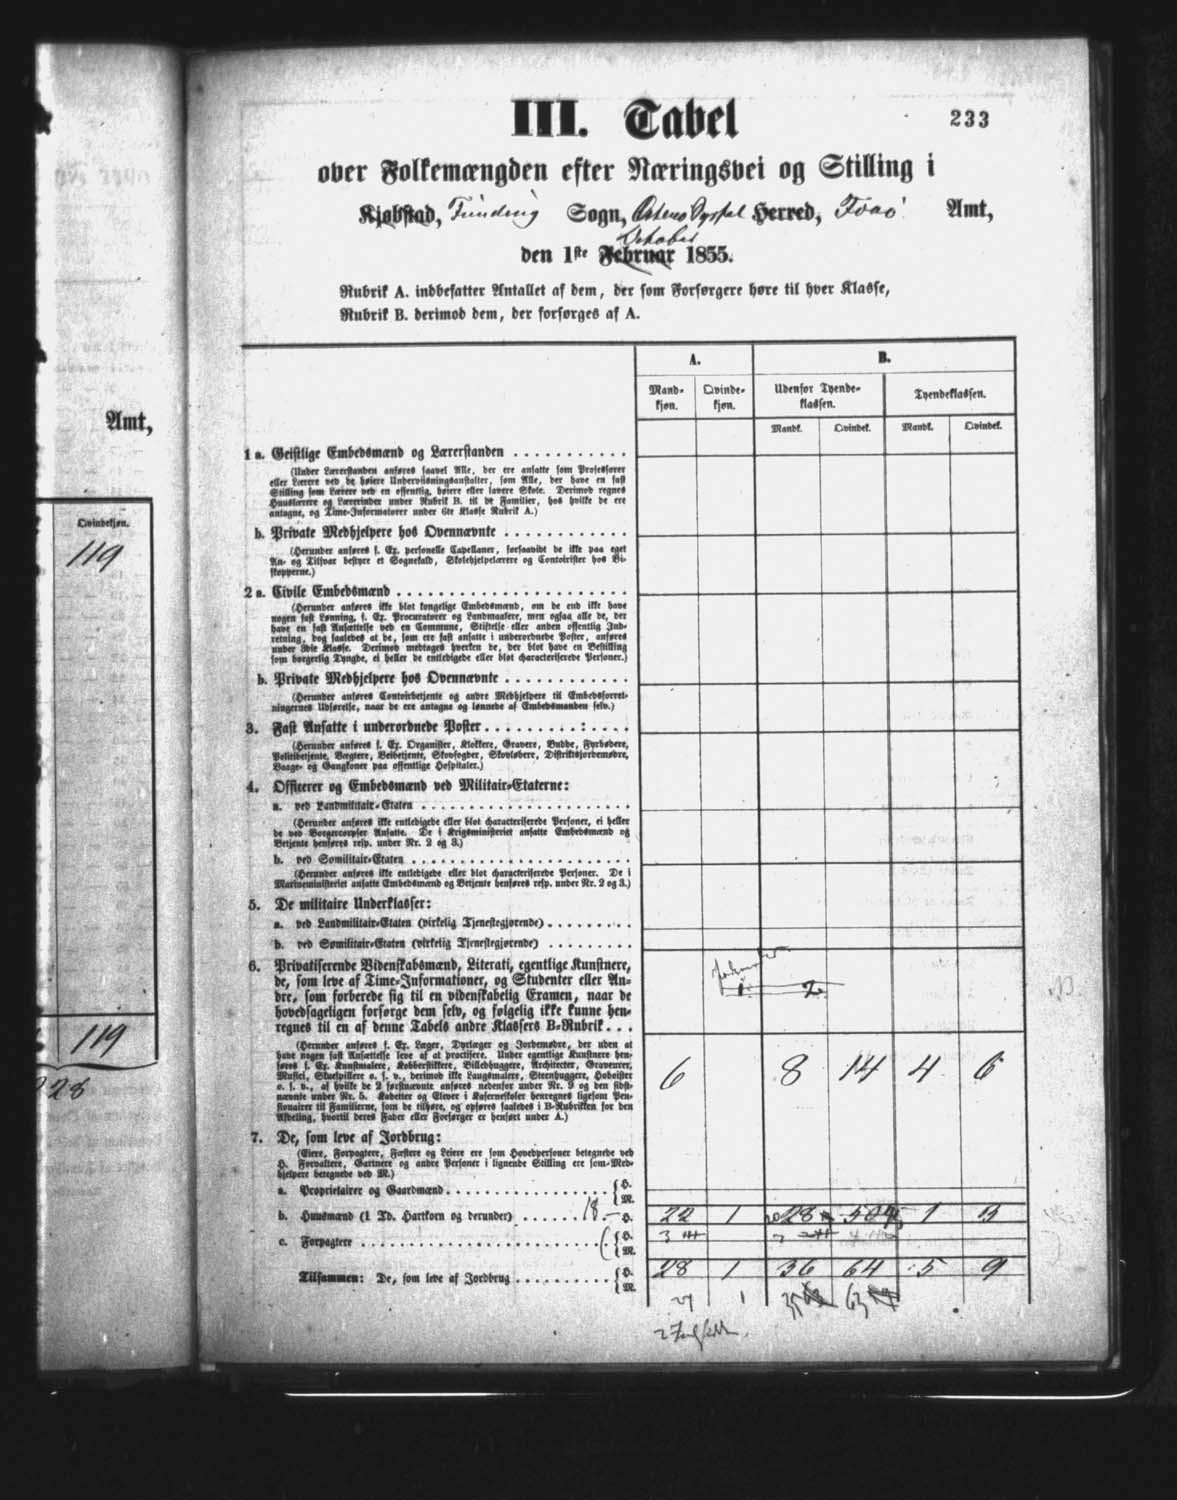 233
III. Tabel
over Folkemængden efter Næringsvei og Stilling i
Kjøbstad, Funding Sogn, Østerø Syssel Herred, Færø Amt,
October
den 1ste Februar 1855.
Rubrik A. indbefatter Antallet af dem, der som Forsørgere høre til hver Klasse,
Rubrik B. derimod dem, der forsørges af A.
Amt,
Qvindekjøn.
119
119
228
A. B.
Mandkjøn. Qvindekjøn. Udenfor Tyendeklassen. Tyendeklassen.
Mandk. Qvindek. Mandk. Qvindek.
1 a. Geistlige Embedsmænd og Lærerstanden
(Under Lærerstanden anføres saavel Alle, der ere ansatte som Professorer
eller Lærere ved de høiere Underviisningsanstalter, som Alle, der have en fast
Stilling som Lærere ved en offentlig, høiere eller lavere Skole. Derimod regnes
Huuslærere og Lærerinder under Rubrik B. til de Familier, hos hvilke de ere
antagne, og Time-Informatorer under 6te Klasse Rubrik A.)
b. Private Medhjelpere hos Ovennævnte
(Herunder anføres f. Ex. personelle Capellaner, forsaavidt de ikke paa eget
An- og Tilsvar bestyre et Sognekald, Skolehjelpelærere og Contoirister hos Biskopperne.)
2 a. Civile Embedsmænd
(Herunder anføres ikke blot kongelige Embedsmænd, om de end ikke have
nogen fast Lønning, f. Ex. Procuratorer og Landmaalere, men ogsaa alle de, der
have en fast Ansættelse ved en Commune, Stiftelse eller anden offentlig Indretning, dog saaledes at de, som ere fast ansatte i underordnede Poster, anføres
under 3die Klasse. Derimod medtages hverken de, der blot have en Bestilling
som borgerlig Tyngde, ei heller de entledigede eller blot characteriserede Personer.)
b. Private Medhjelpere hos Ovennævnte
(Herunder anføres Contoirbetjente og andre Medhjelpere til Embedsforretningernes Udførelse, naar de ere antagne og lønnede af Embedsmanden selv.)
3. Fast Ansatte i underordnede Poster
(Herunder anføres f. Ex. Organister, Klokkere, Gravere, Budde, Fyrbødere,
Politibetjente, Vægtere, Veibetjente, Skovfogder, Skovløbere, Districtsjordemødre,
Vaage- og Gangkoner paa offentlige Hospitaler.)
4. Officerer og Embedsmænd ved Militair-Etaterne:
a. ved Landmilitair-Etaten
(Herunder anføres ikke entledigede eller blot characteriserede Personer, ei heller
de ved Borgercorpser Ansatte. De i Krigsministeriet ansatte Embedsmænd og
Betjente henføres resp. under Nr. 2 og 3.)
b. ved Sømilitair-Etaten
(Herunder anføres ikke entledigede eller blot characteriserede Personer. De i
Marineministeriet ansatte Embedsmænd og Betjente henføres resp. under Nr. 2 og 3.)
5. De militaire Underklasser:
a. ved Landmilitair-Etaten (virkelig Tjenestegjørende)
b. ved Sømilitair-Etaten (virkelig Tjenestegjørende)
6. Privatiserende Videnskabsmænd, Literati, egentlige Kunstnere,
de, som leve af Time-Informationer, og Studenter eller Andre, som forberede sig til en videnskabelig Examen, naar de
hovedsageligen forsørge dem selv, og følgelig ikke kunne henregnes til en af denne Tabels andre Klassers B-Rubrik
1 2
(Herunder anføres f. Ex. Læger, Dyrlæger og Jordemødre, der uden at
have nogen fast Ansættelse leve af at practisere. Under egentlige Kunstnere henføres f. Ex. Kunstmalere, Kobberstikkere, Billedhuggere, Architecter, Graveurer,
Musici, Skuespillere o. s. v., derimod ikke Laugsmalere, Steenhuggere, Hoboister
o. s. v., af hvilke de 2 førstnævnte anføres nedenfor under Nr. 9 og den sidstnævnte under Nr. 5. Kadetter og Elever i Kaserneskoler henregnes ligesom Pensionairer til Familierne, som de tilhøre, og opføres saaledes i B-Rubrikken for den
Afdeling, hvortil deres Fader eller Forsørger er henført under A.)
7. De, som leve af Jordbrug:
(Eiere, Forpagtere, Fæstere og Leiere ere som Hovedpersoner betegnede ved
H. Forvaltere, Gartnere og andre Personer i lignende Stilling ere som Medhjelpere betegnede ved M.)
6 8 14 4 6
a. Proprietairer og Gaardmænd H. M.
b. Huusmænd (1 Td. Hartkorn og derunder) 18. H. 22 1 28 50 1 3
c. Forpagtere H. M.
Tilsammen: De, som leve af Jordbrug H. M. 28 1 36 64 5 9
27 1 35 63